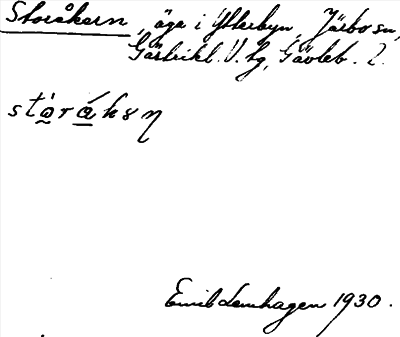 Storåkern, äga i Ytterbyn, Järbo sn,
Gästrikl. V. tg, Gävleb. l.
stòrákän
Emil Lenhagen 1930.